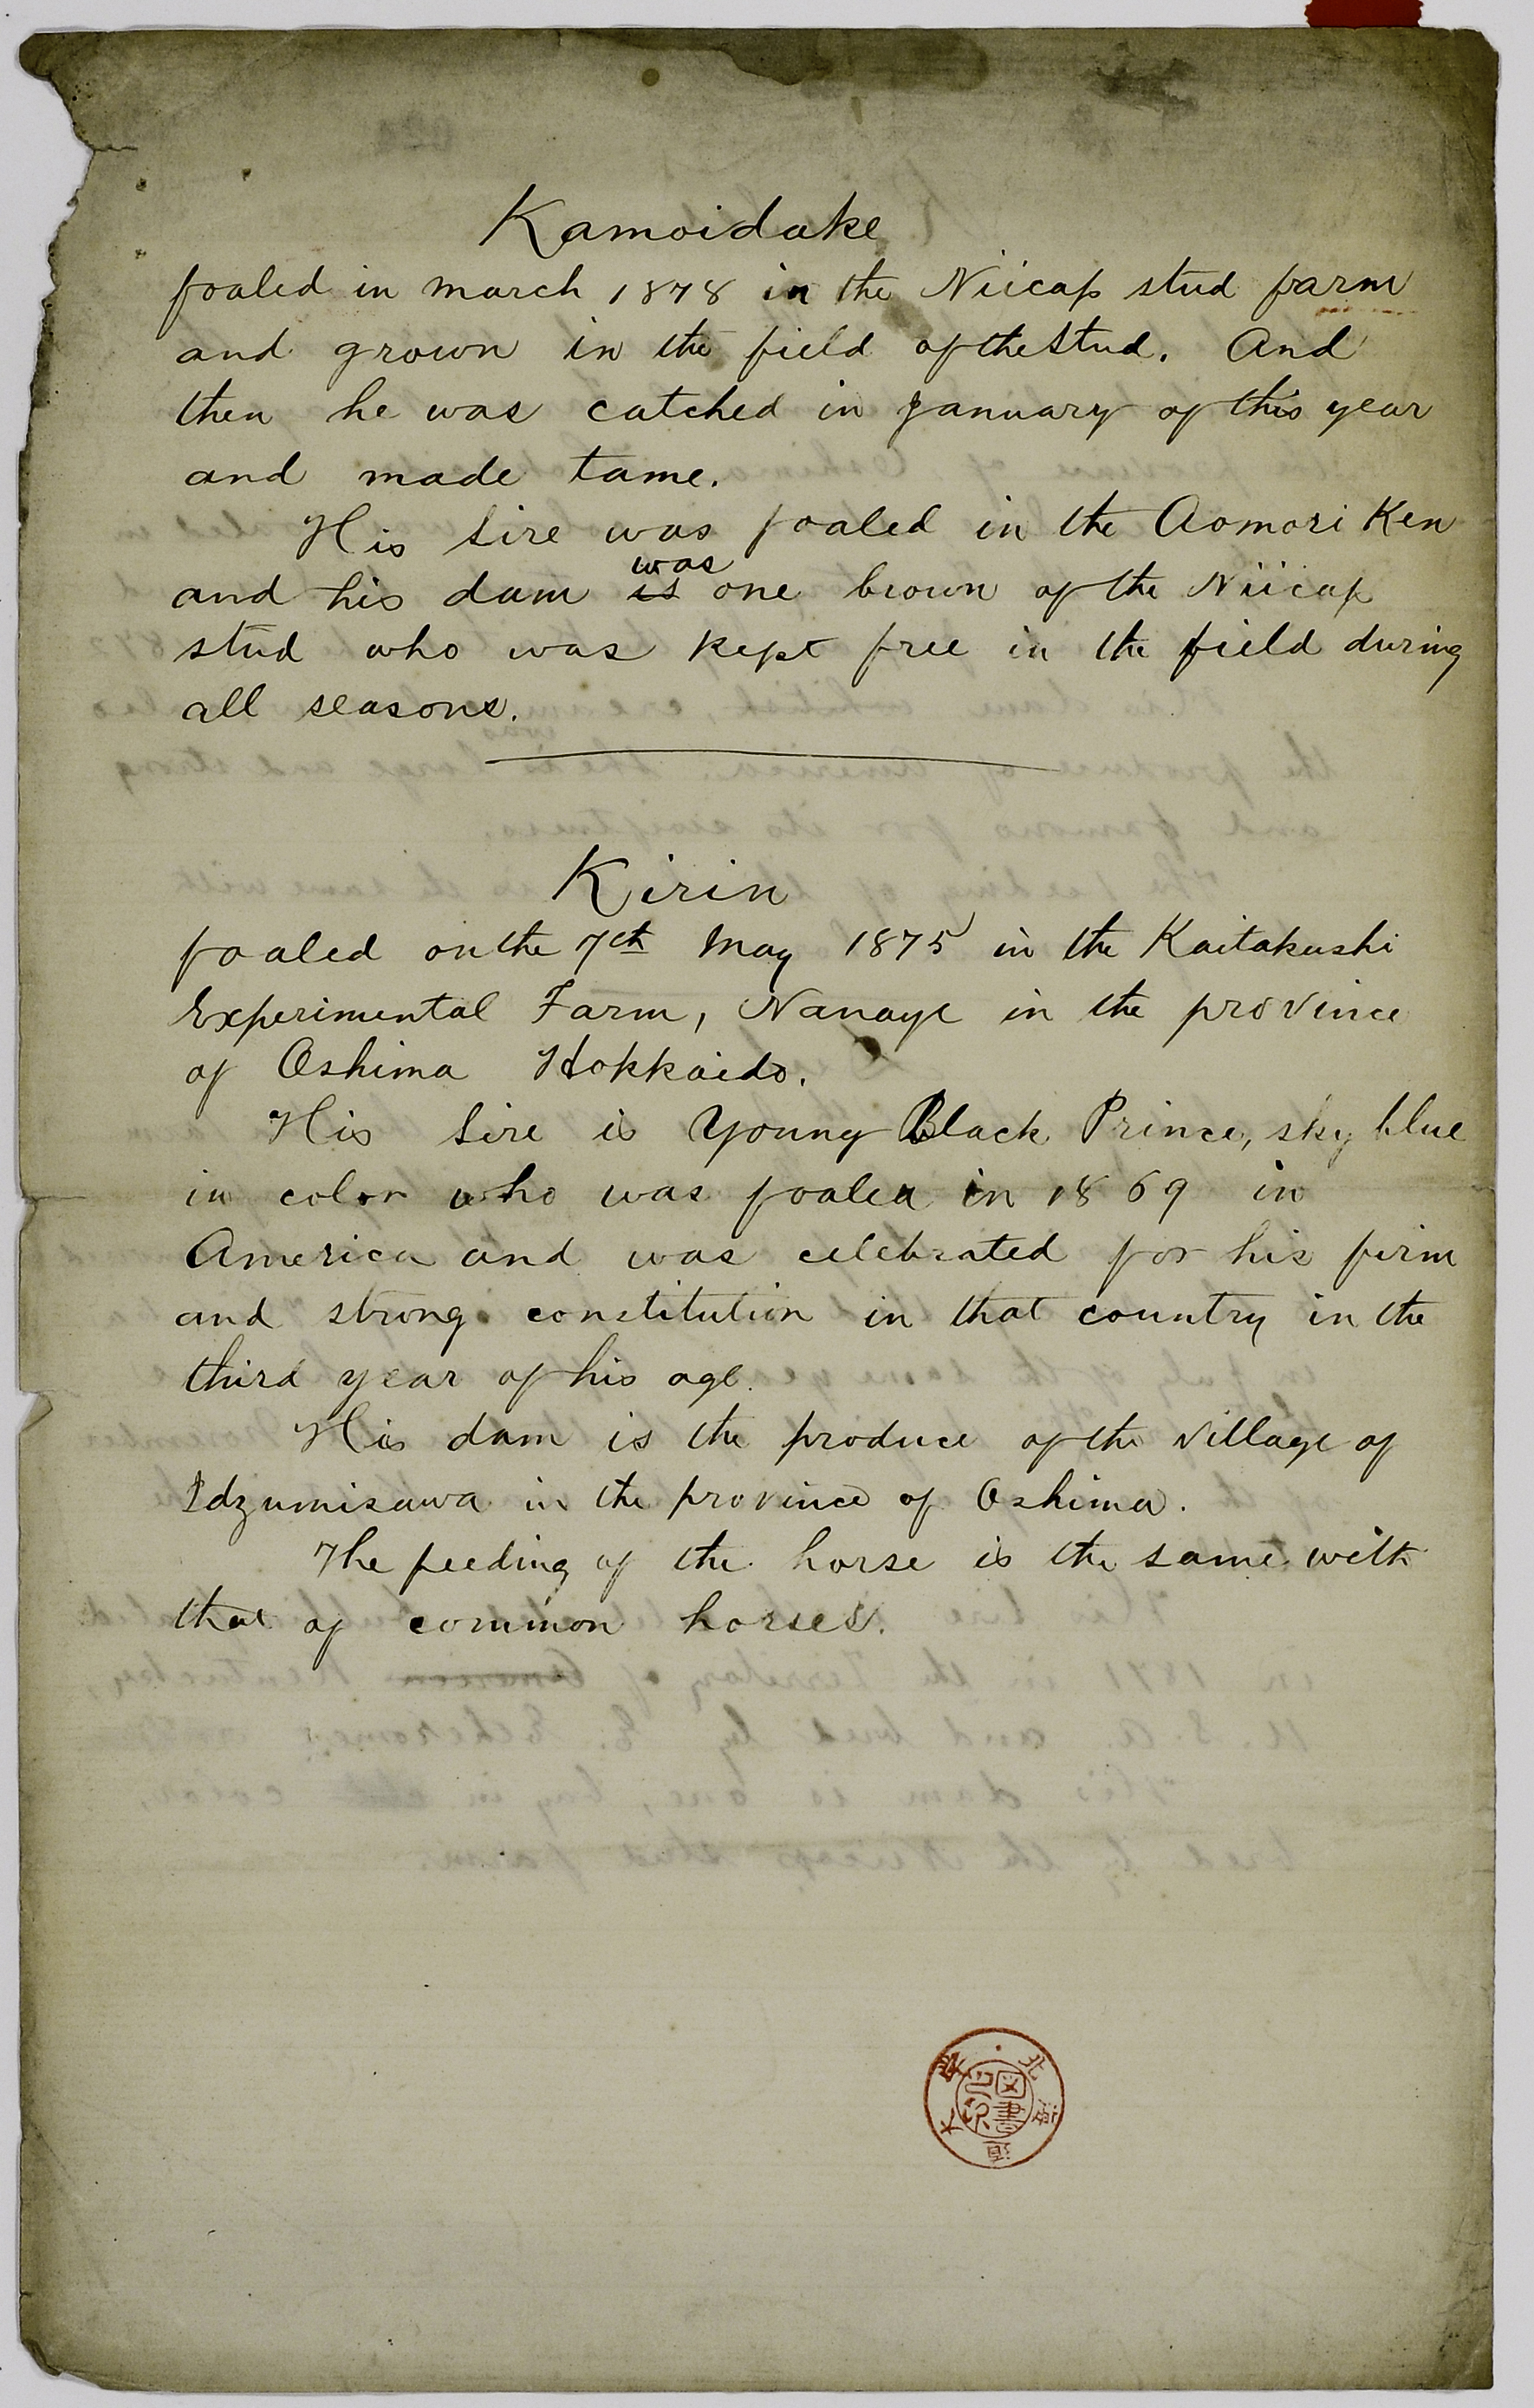 Kamoidake
foaled in march 1878 in the Niicap stud farm
and grown in the field of the Stud. And
then he was catched in January of this year
and made tame.
His Sire was foaled in the Aomori Ken
was
and his dam is one brown of the Niicap
stud who was kept free in the field during
all seasons.
Kirin
foaled on the 7th May 1875 in the Kaitakushi
Experimental Farm, Nanaye in the province
of Oshima Hokkaido.
His Sire is Young Black Prince, sky blue
in color who was foaled in 1869 in
America and was celebrated for his firm
and strong constitution in that country in the
third year of his age.
His dam is the produce of the village of
Idzumisawa in the province of Oshima.
The feeding of the horse is the same with
that of common horses.
図書